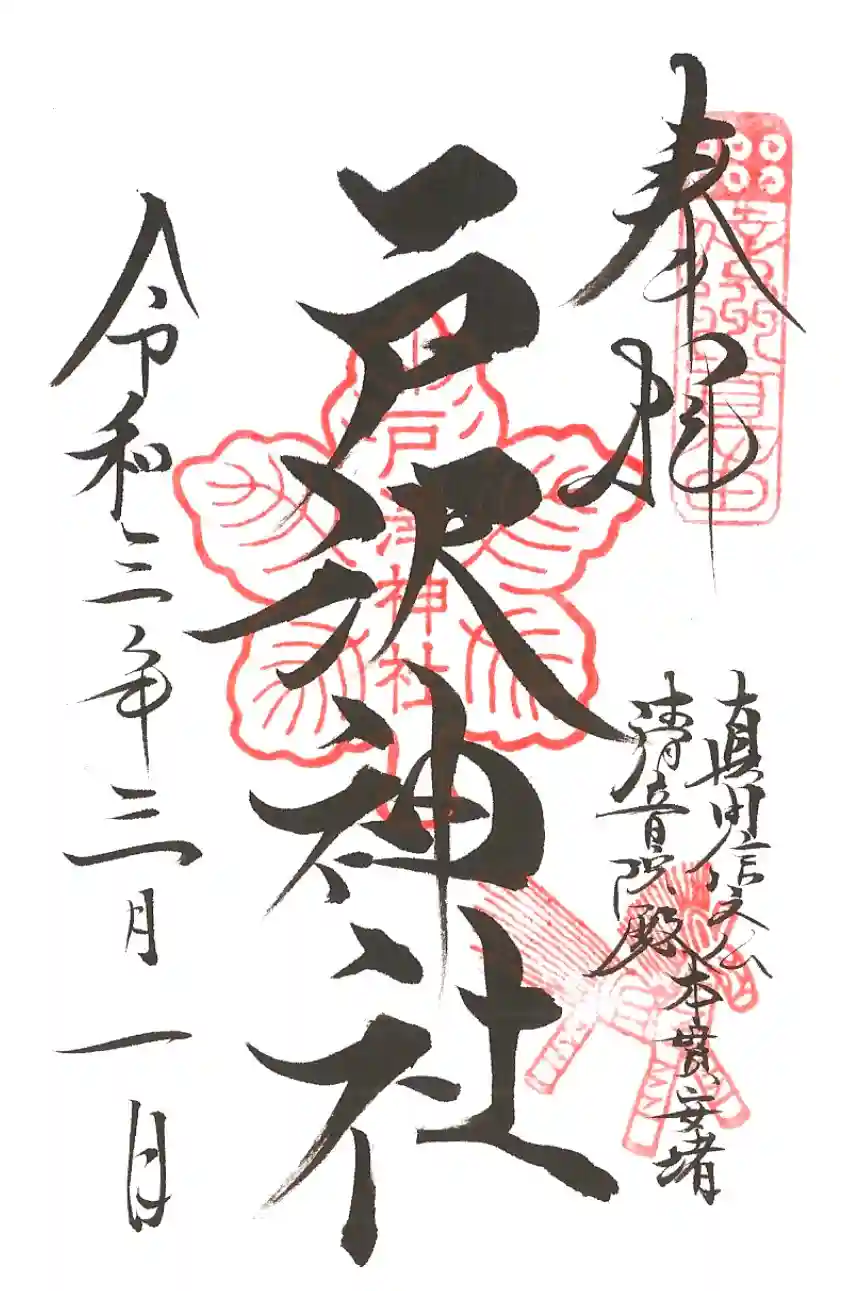 奉拝
真田信之公
清音院殿
本貫安堵
戸沢神社
戸澤神社
令和三年三月一日